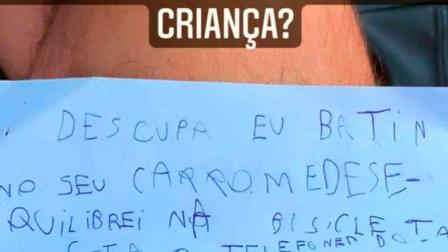 CRIANÇA?
DESCUPA EU BATIN
NO SEU CARRO MEDESE-
QUILIBREI NA BISICLETA
O TELEFONE DO